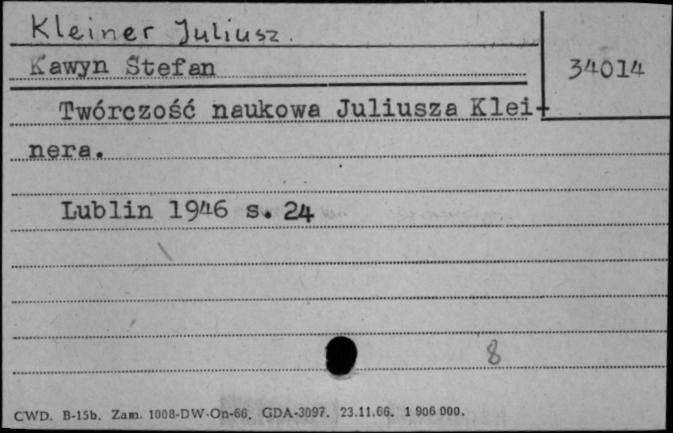 Kleiner Juliusz.
Kawyn Stefan
34014
Twórczość naukowa Juliusza Klei-
nera.
Lublin 1946 s. 24
8
CWD. B-15b. Zam. 1008-DW-On-66. GDA-3097. 23.11.66. 1 906 000.